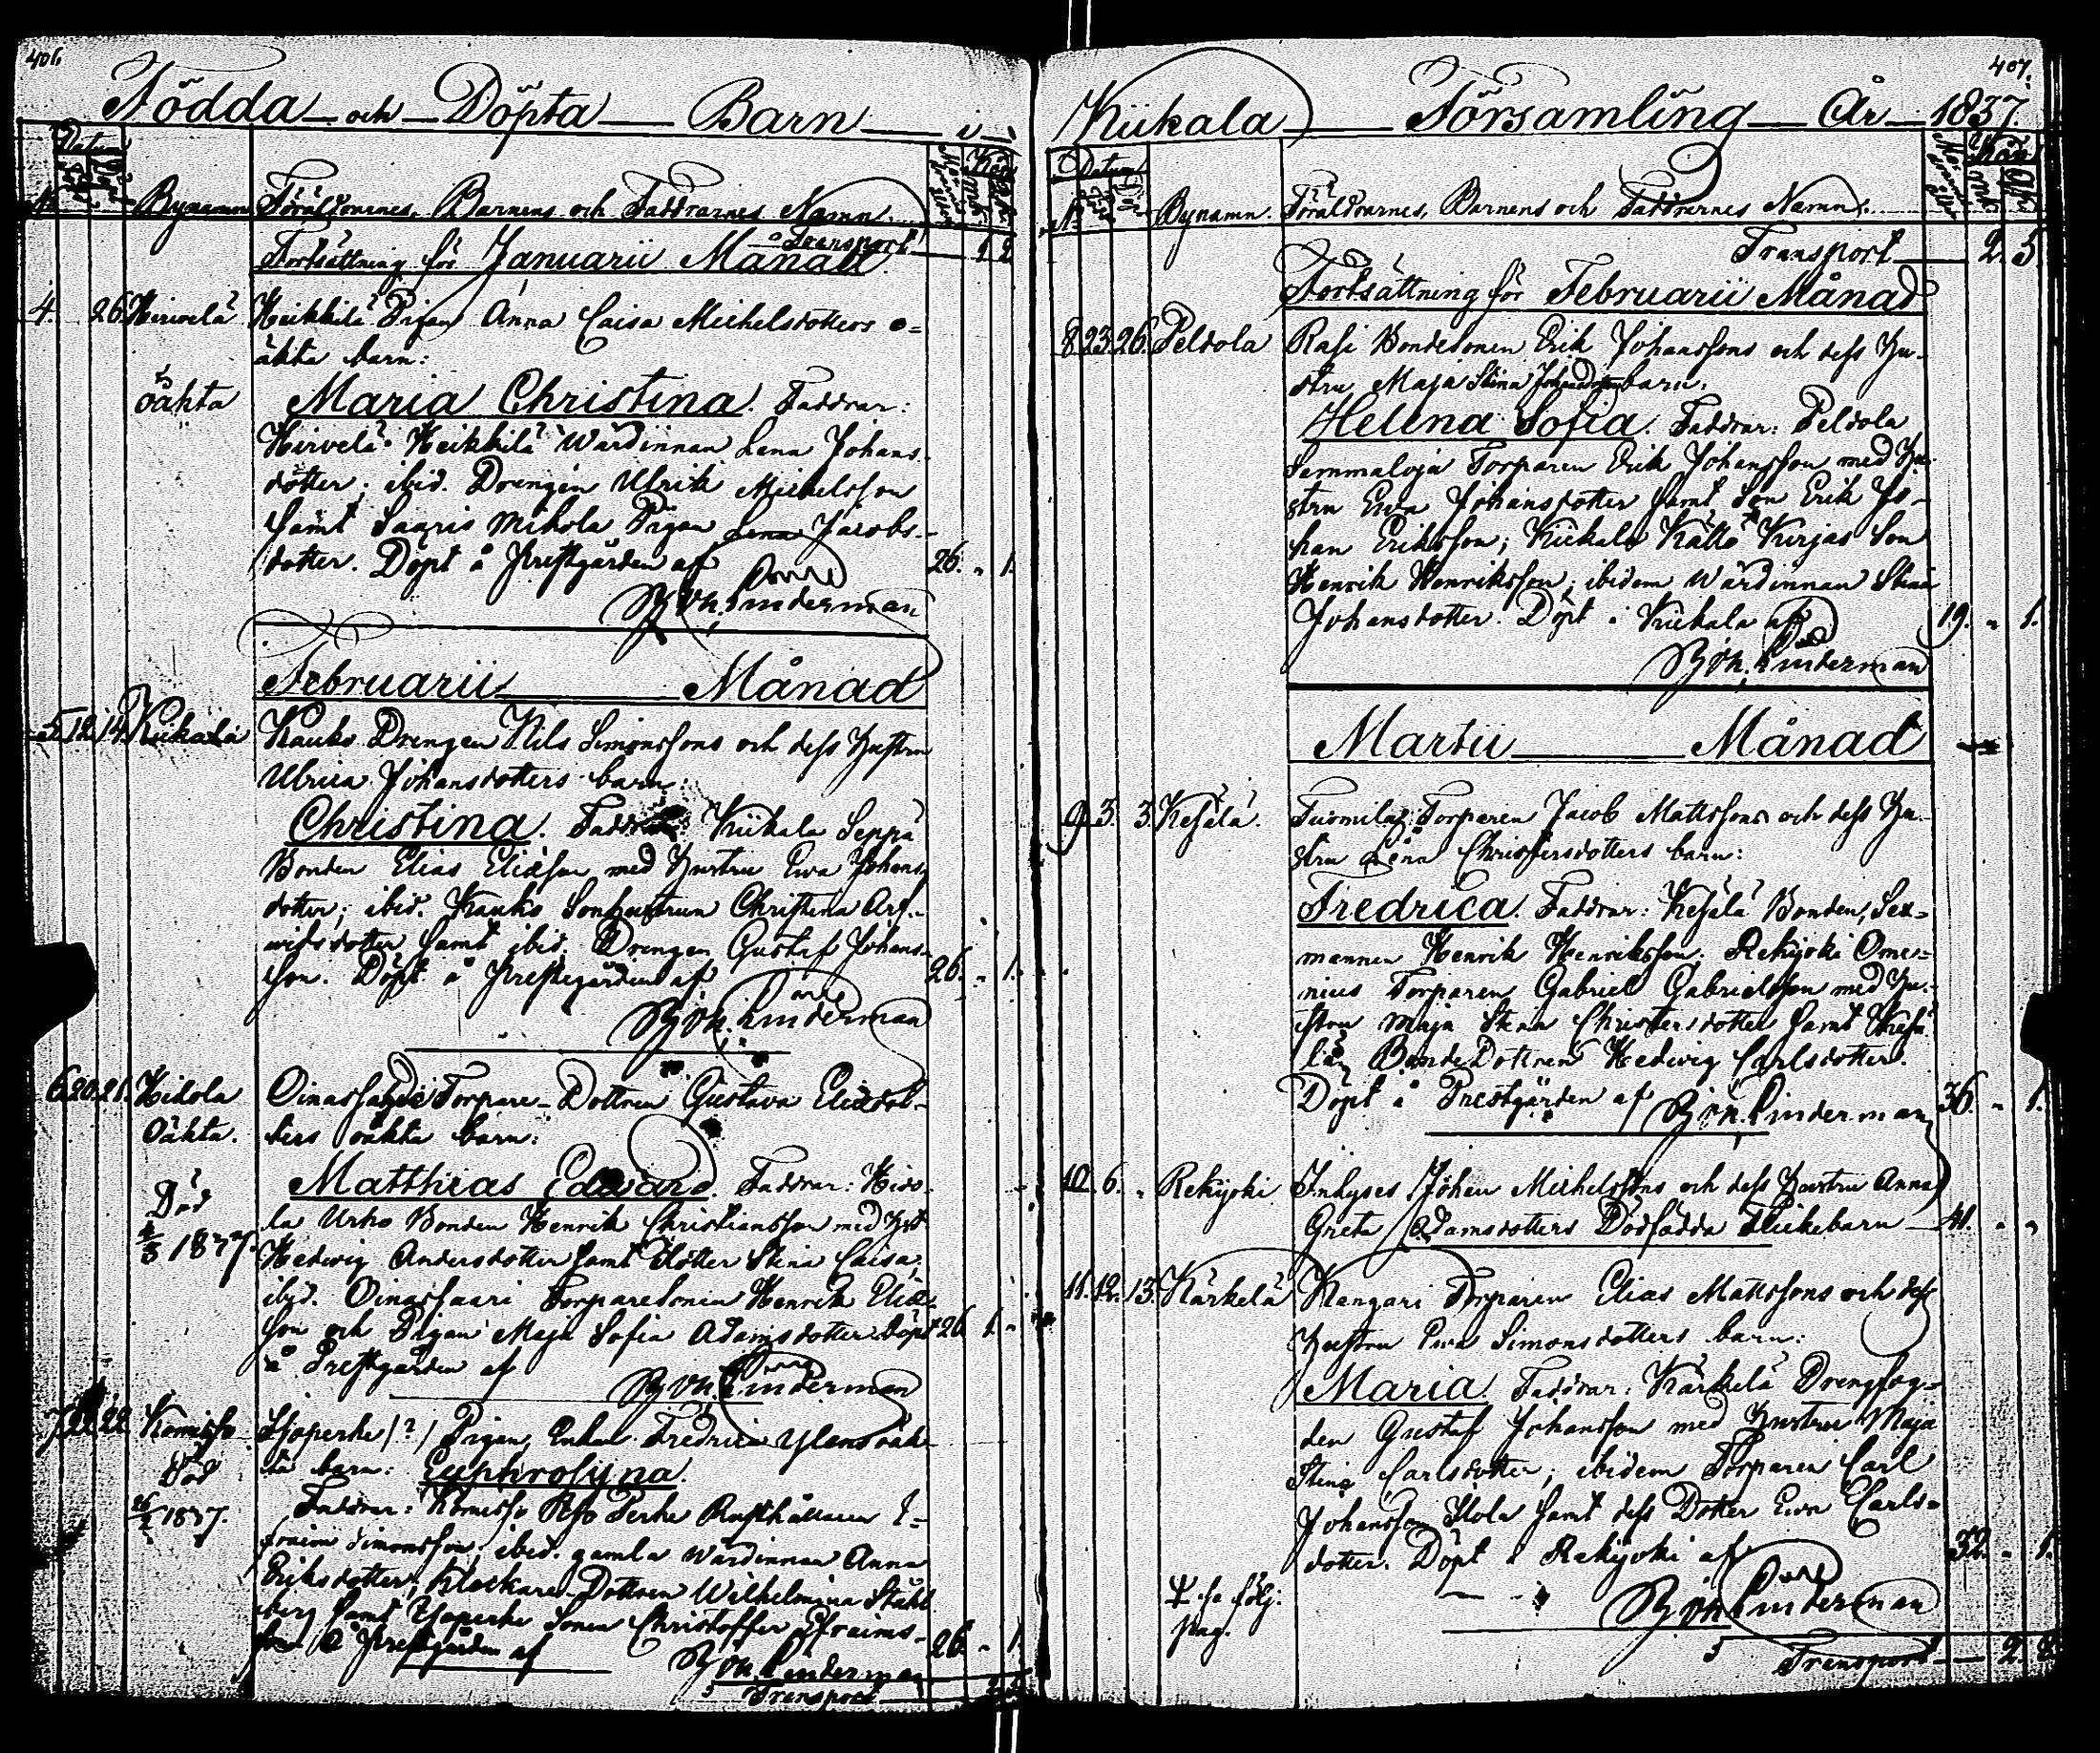 406.
Födda och Döpta Barn i
Datum
Bynamn Föräldrarnes, Barnens och Faddrarnes Namn.
Transport 1 2
Fortsättning för Januarii Månad
4. 26. Hirvelä Heikkilä Pigan Anna Caisa Michelsdotters o=
äkta barn:
oäkta Maria Christina. Faddrar:
Hirvelä Heikkilä Wärdinnan Lena Johans-
dotter; ibid. Drengen Ulrik Michelsson
samt Saaris Mikola Pigan Lena Jacobs-
dotter. Döpt å Prestgården af 26. " 1.
Joh. Linderman
Februarii Månad
5. 12. 14. Kiikala Kauko Drengen Nils Simonssons och dess Hustru
Ulrica Johansdotters barn:
Christina. Faddrar: Kiikala Seppä
Bonden Elias Eliasson med Hustru Ewa Johans-
dotter; ibid. Kauko Sonhustrun Christina Arf-
widsdotter samt ibid. Drengen Gustaf Johans-
son. Döpt å Prestgården af 26. " 1.
Joh. Linderman
6. 20. 21. Hidola Oinassaari Torpare-Dottren Gustava Eliædot-
Oäkta. ters oäkta barn:
Matthias Edward. Faddrar: Hido-
Död la Urho Bonden Henrik Christiansson med Hust.
1837. Hedwig Andersdotter samt Dotter Stina Caisa;
ibid. Oinassaari Torparesonen Henrik Elias-
son och Pigan Maja Sofia Adamsdotter. Döpt 26 1. "
å Prestgården af
Joh. Linderman
7. 22. 22. Komisuo Isoperhe (?) Pigan Enkan Fredrica Ylens oäk-
Död ta barn: Euphrosyna.
26/2 1837. Faddrar: Komisuo Iso Perhe Rusthållaren E-
fraim Simonsson, ibid. gamla wärdinnan Anna
Eriksdotter, Klockare-Dottren Wilhelmina Stähl
berg samt Isoperhe Sonen Christoffer Efraims-
son å Prestgården af 26. " 1.
Joh. Linderman
Transport 2 5
407.
Kiikala Församling År 1837.
Datum
N. Bynamn. Föräldrarnes, Barnens och Faddrarnes Namn.
Transport 2. 5.
Fortsättning för Februarii Månad
8. 23. 26. Peldola Rasi Bondesonen Erik Johanssons och dess Hu-
stru Maja Stina Johansdotters barn:
Helena Sofia. Faddrar: Peldola
Sammaloja Torparen Erik Johansson med Hu-
stru Ewa Johansdotter samt Son Erik Jo-
han Eriksson; Kiikala Källö Kirjas Son
Henrik Henriksson; ibidem Wärdinnan Stina
Johansdotter. Döpt i Kiikala af 19. " 1.
Joh. Linderman
Martii Månad
9. 3. 3. Kesälä. Tuomila Torparen Jacob Mattssons och dess Hu-
stru Lena Christersdotters barn:
Fredrica. Faddrar: Kesälä Bonden, Sex-
mannen Henrik Henriksson; Rekijoki Ome-
nius Torparen Gabriel Gabrielsson med Hu-
stru Maja Stina Christersdotter samt Kesä-
lä Bonde Dottren Hedwig Carlsdotter.
Döpt å Prestgården af Joh. Linderman 36. " 1.
10. 6. " Rekijoki Inkyses Johan Michelssons och dess Hustru Anna
Greta Adamsdotters Dödfödda Flickebarn 41. " "
11. 12. 13. Kärkelä Kangari Torparen Elias Mattssons och dess
Hustru Ewa Simonsdotters barn:
Maria. Faddrar: Kärkelä Drengfog-
den Gustaf Johansson med Hustru Maja
Stina Carlsdotter; ibidem Torparen Carl
Johansson Stola samt dess Dotter Ewa Carls-
dotter. Döpt i Rekijoki af 32. " 1.
Joh. Linderman
se följ:
pag.
Transport 2. 8